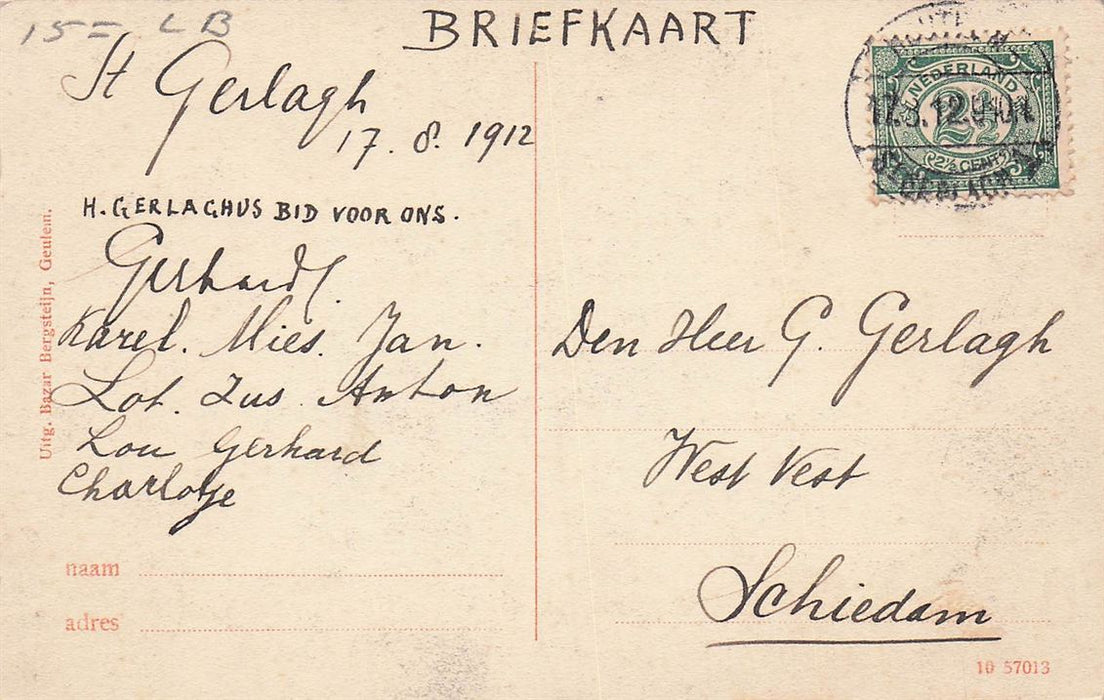 15= LB
BRIEFKAART
St Gerlagh
17. 8. 1912
H. GERLAGHUS BID VOOR ONS.
Gerhard
Karel. Mies. Jan.
Lot. Zus Anton
Lou Gerhard
Charlotje
naam
adres
Uitg. Bazar Bergsteijn, Geulem.
NEDERLAND
2½
2½ CENT
17.8.12
Den Heer G. Gerlagh
West Vest
Schiedam
10 57013